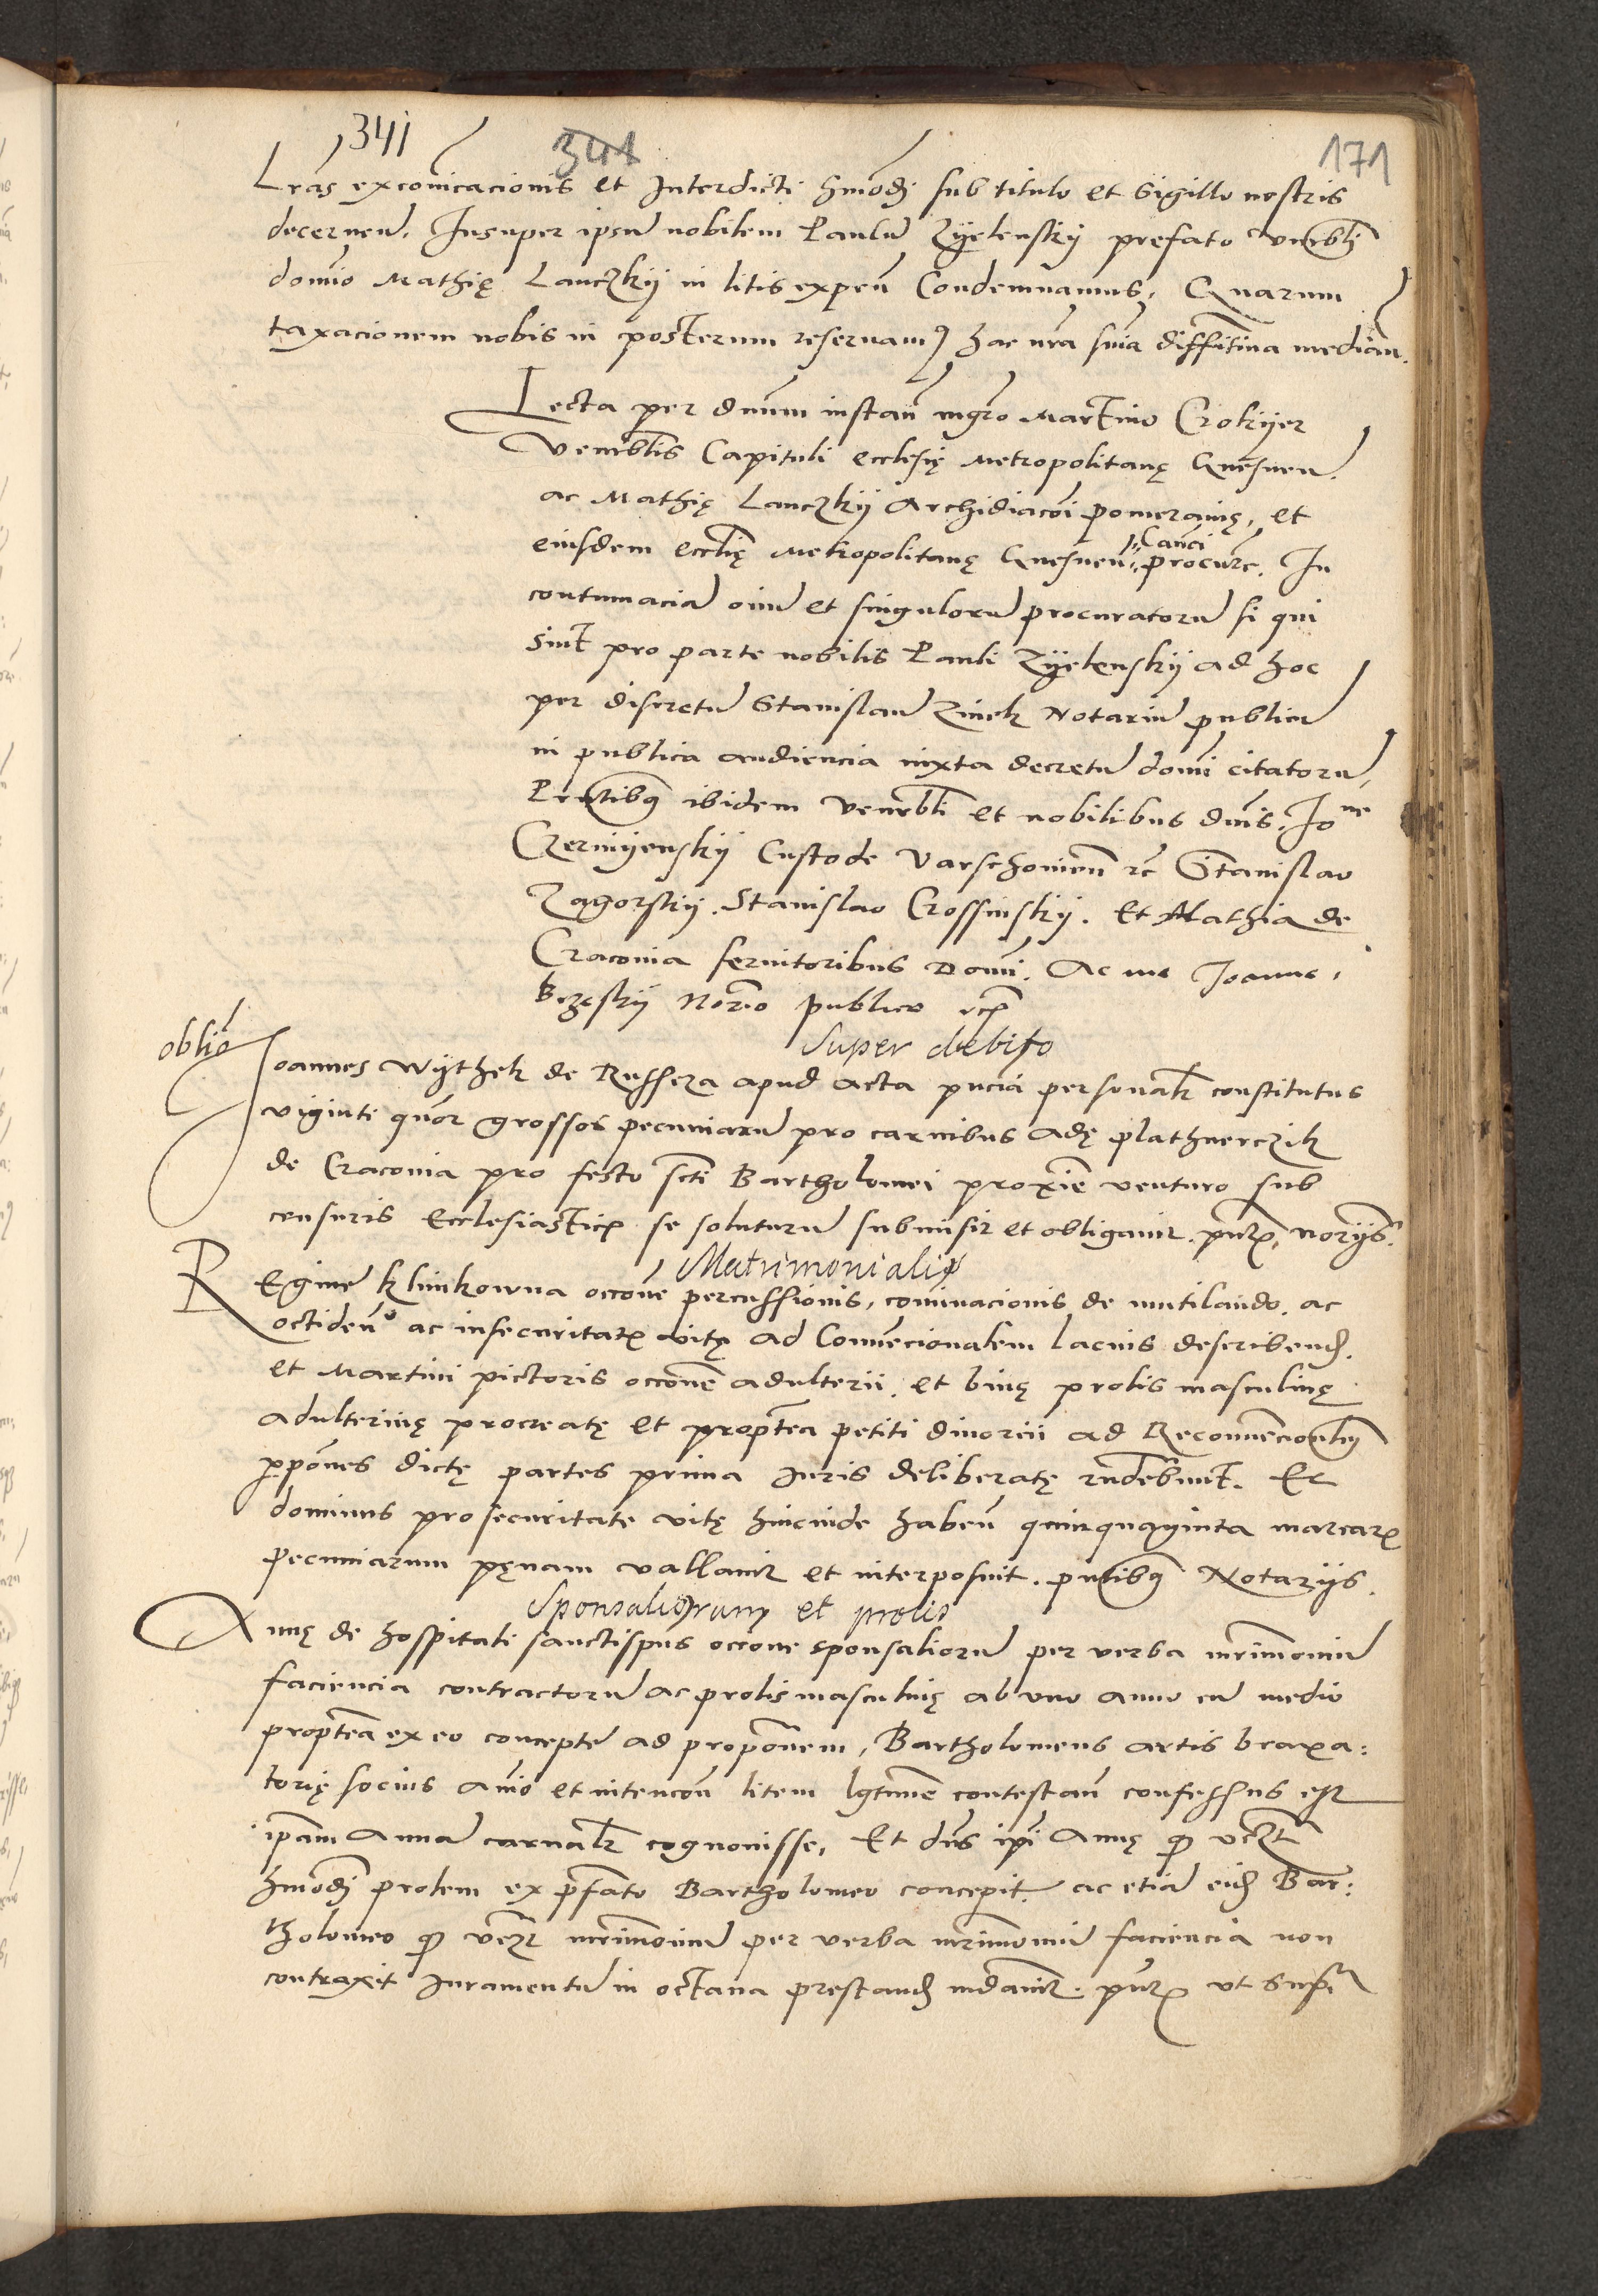 341
341
171
Lras excoicacionis et Interdicti hmodi sub titulo et sigillo nostris
decernen. Insuper ipsu nobilem Paulu Zyelensky prefato venrbli
domio Mathię Lanczky in litis expen Condemnamus. Quarum
taxacionem nobis in posterum reseruam9 hac nra snia diffitiua median.
Lecta per dnum instan mgro Martino Crokyer
Venrblis Capituli ecclesię Metropolitanę Gnesnen
ac Mathię Lanczky Archidiacoi pomeranię, et
Canci
eiusdem ecclię Metropolitanę Gnesnen procure. In
contumacia oim et singuloru procuratoru si qui
sint pro parte nobilis Pauli Zyelensky ad hoc
per discretu Stanislau Zinek Notariu publicu
in publica audiencia iuxta decretu domi citatoru
Prntibq ibidem venrbli et nobilibus dnis. Jone
Czermyensky Custode Varschouien rc Stanislao
Zagorsky. Stanislao Crossinsky. Et Mathia de
Craconia seruitoribus Domi. Ac me Joanne
Brzesky Norio publico rcp
oblio
Super debito
Joannes Wythek de Russcza apud acta pncia personalr constitutus
viginti quor grossos pecuniaru pro carnibus Adę plathnerczik
de Craconia pro festo scti Bartholomei proxie venturo sub
censuris ecclesiasticis se soluturu submisit et obligauit. pntibus noriis
Matrimonialis
Regine Klimkowna occone percussionis, cominacionis de mutilando. ac
occiden ac insecuritatis vitę ad Conuencionalem lacius describend.
et Martini pictoris occone adulterii. et binę prolis masculinę
adulterinę procreatę et proptea petiti diuorcii ad Reconuencionlem
ppones dictę partes prima Iuris deliberatę rndebunt. Et
dominus pro securitate vitę hincinde haben quinquaginta marcaru
pecuniarum pęnam vallauit et interposuit. pntibq Notariis.
Sponsaliorum et prolis
Annę de hospitali sanctispus occone sponsalioru per verba mrimoniu
faciencia contractoru ac prolis masculinę ab uno anno cu medio
proptea ex eo concepte ad propone​m, Bartholomeus artis braxa:
torię socius animo et intencon litem lgtime contestan confessus est
ipam Anna carnalr cognouisse, Et dns ipi Annę q vczt
hmodi prolem ex prfato Bartholomeo concepit. ac etia eid Bar:
tholomeo q vczt mrimoniu per verba mrimoniu faciencia non
contraxit Iuramentu in octaua prestand indauit. pntibus ut supra